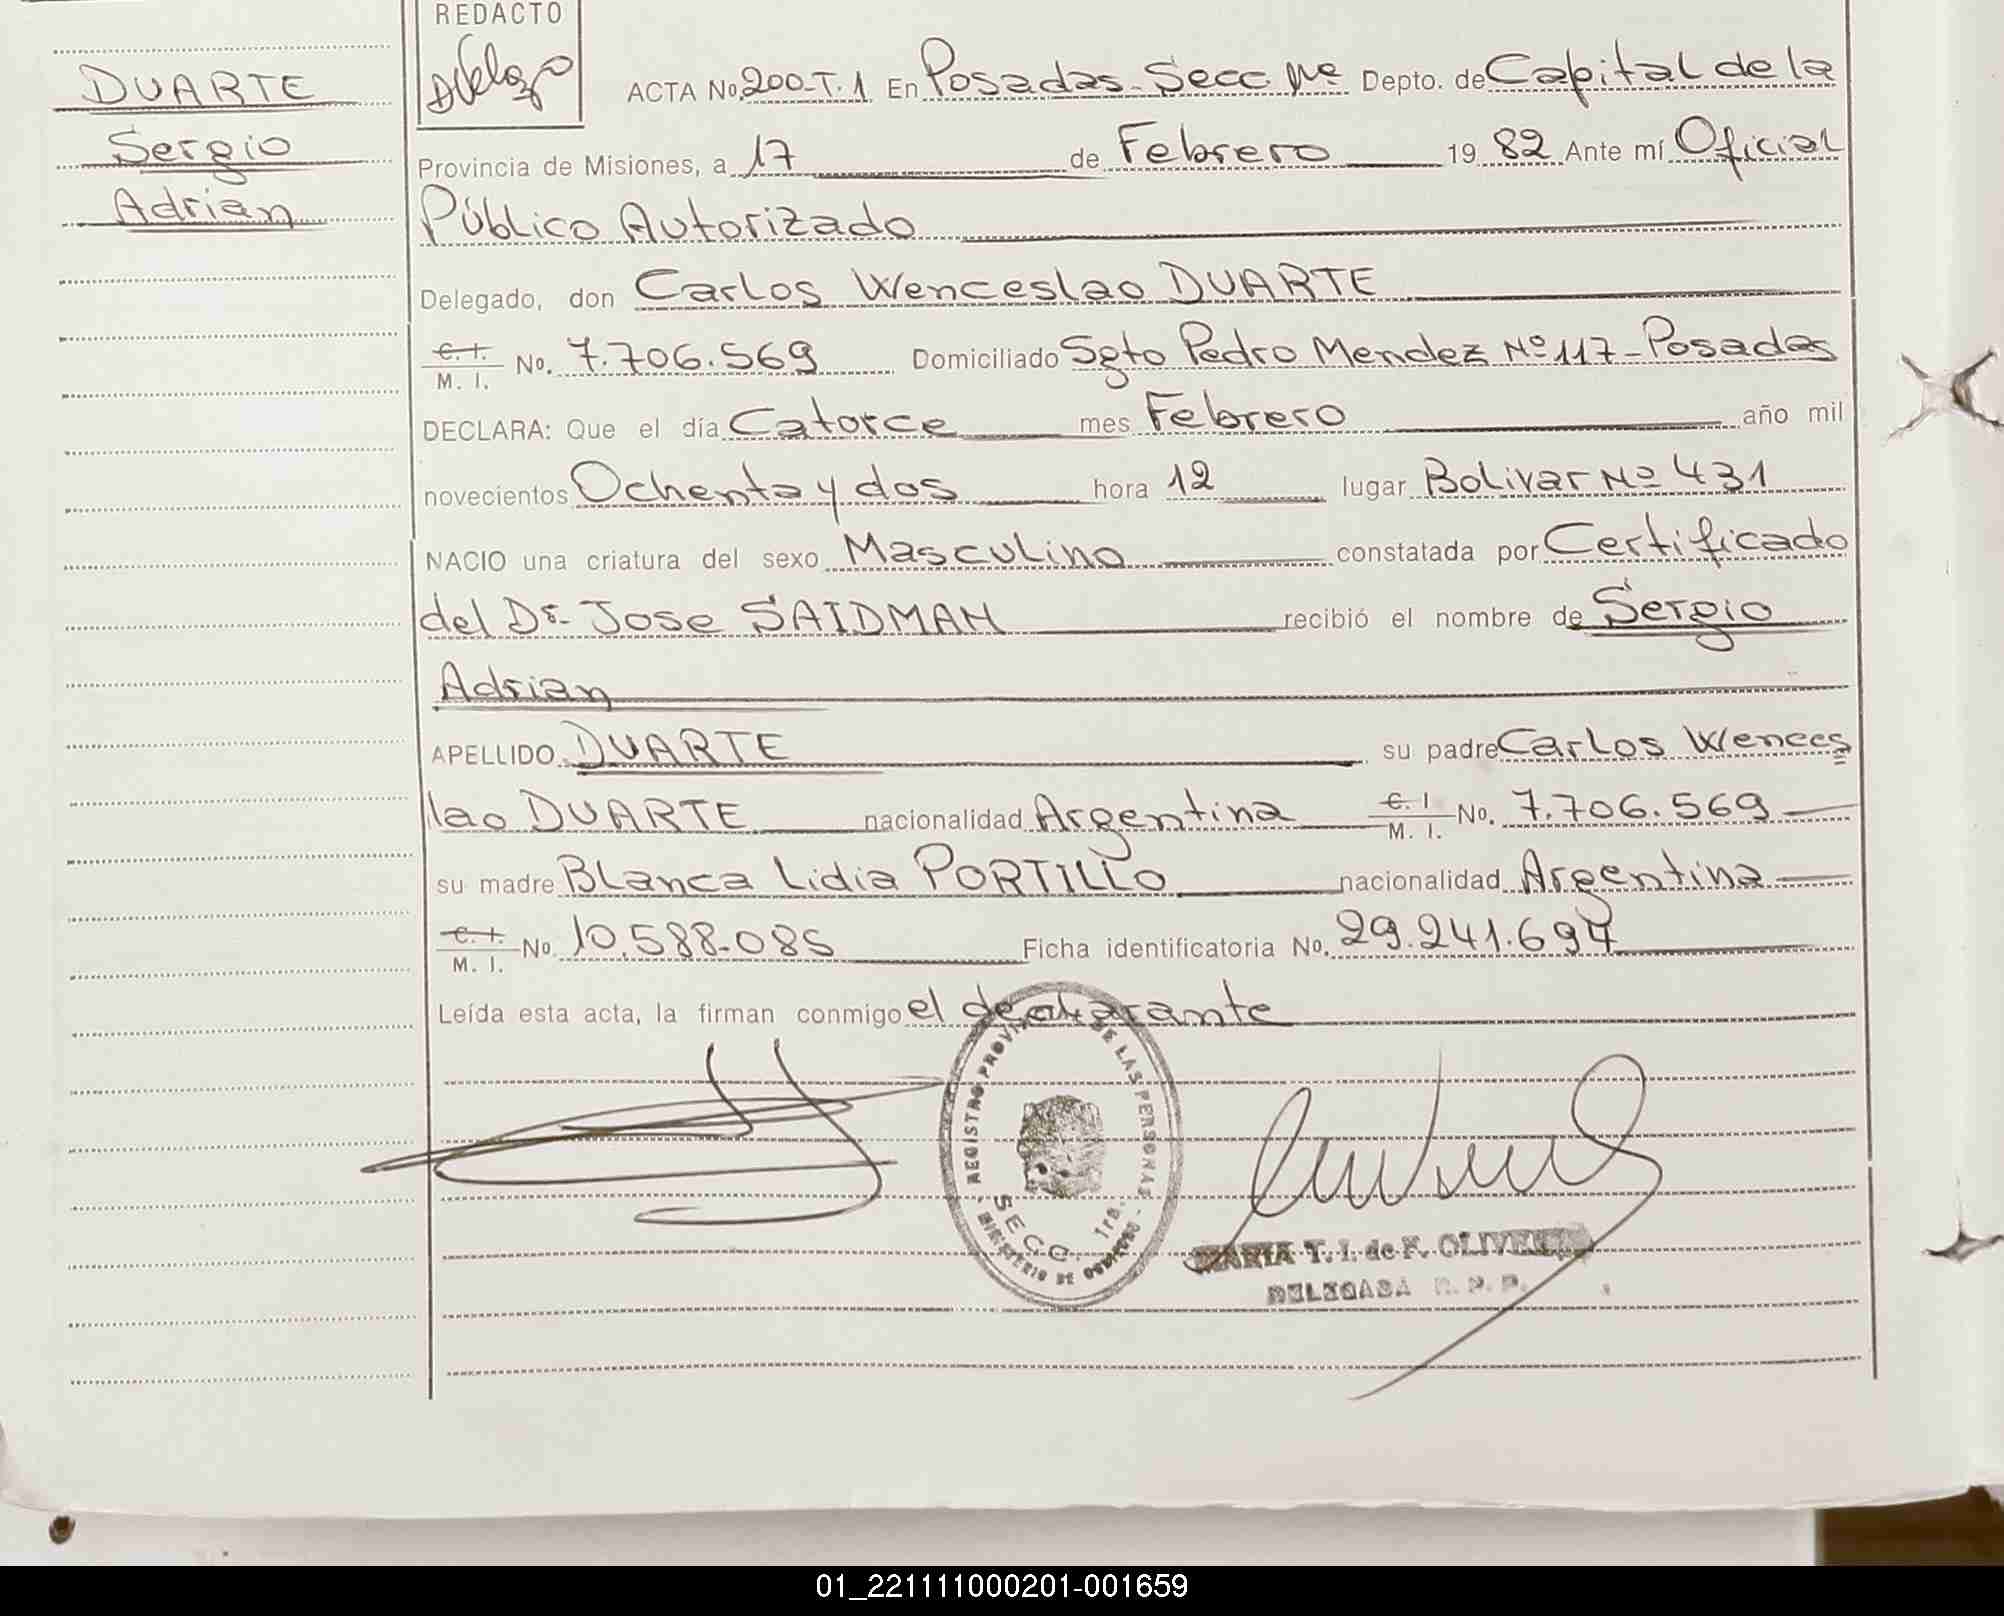 REDACTO
DUARTE
Sergio
Adrian
ACTA No. 200-T.1 En Posadas- Secc 1ra Depto. de Capital de la
Provincia de Misiones, a 17 de Febrero 19 82 Ante mí Oficial
Público Autorizado
Delegado, don Carlos Wenceslao DUARTE
C. I. M. I. No. 7.706.569 Domiciliado Sgto Pedro Mendez Nº 117-Posadas
DECLARA: Que el día Catorce mes Febrero año mil
novecientos Ochenta y dos hora 12 lugar Bolivar Nº 431
NACIO una criatura del sexo Masculino constatada por Certificado
del Dr. Jose SAIDMAN recibió el nombre de Sergio
Adrian
APELLIDO DUARTE su padre Carlos Wences
lao DUARTE nacionalidad Argentina C. I. M. I. No. 7.706.569
su madre Blanca Lidia PORTILLO nacionalidad Argentina
C. I. M. I. No. 10.588.085 Ficha identificatoria No. 29.241.694
Leída esta acta, la firman conmigo el declarante
REGISTRO PROVINCIAL DE LAS PERSONAS
SECC. 1ra.
MINISTERIO DE GOBIERNO
MARIA T. I. de F. OLIVEIRA
DELEGADA R. P. P.
01_221111000201-001659